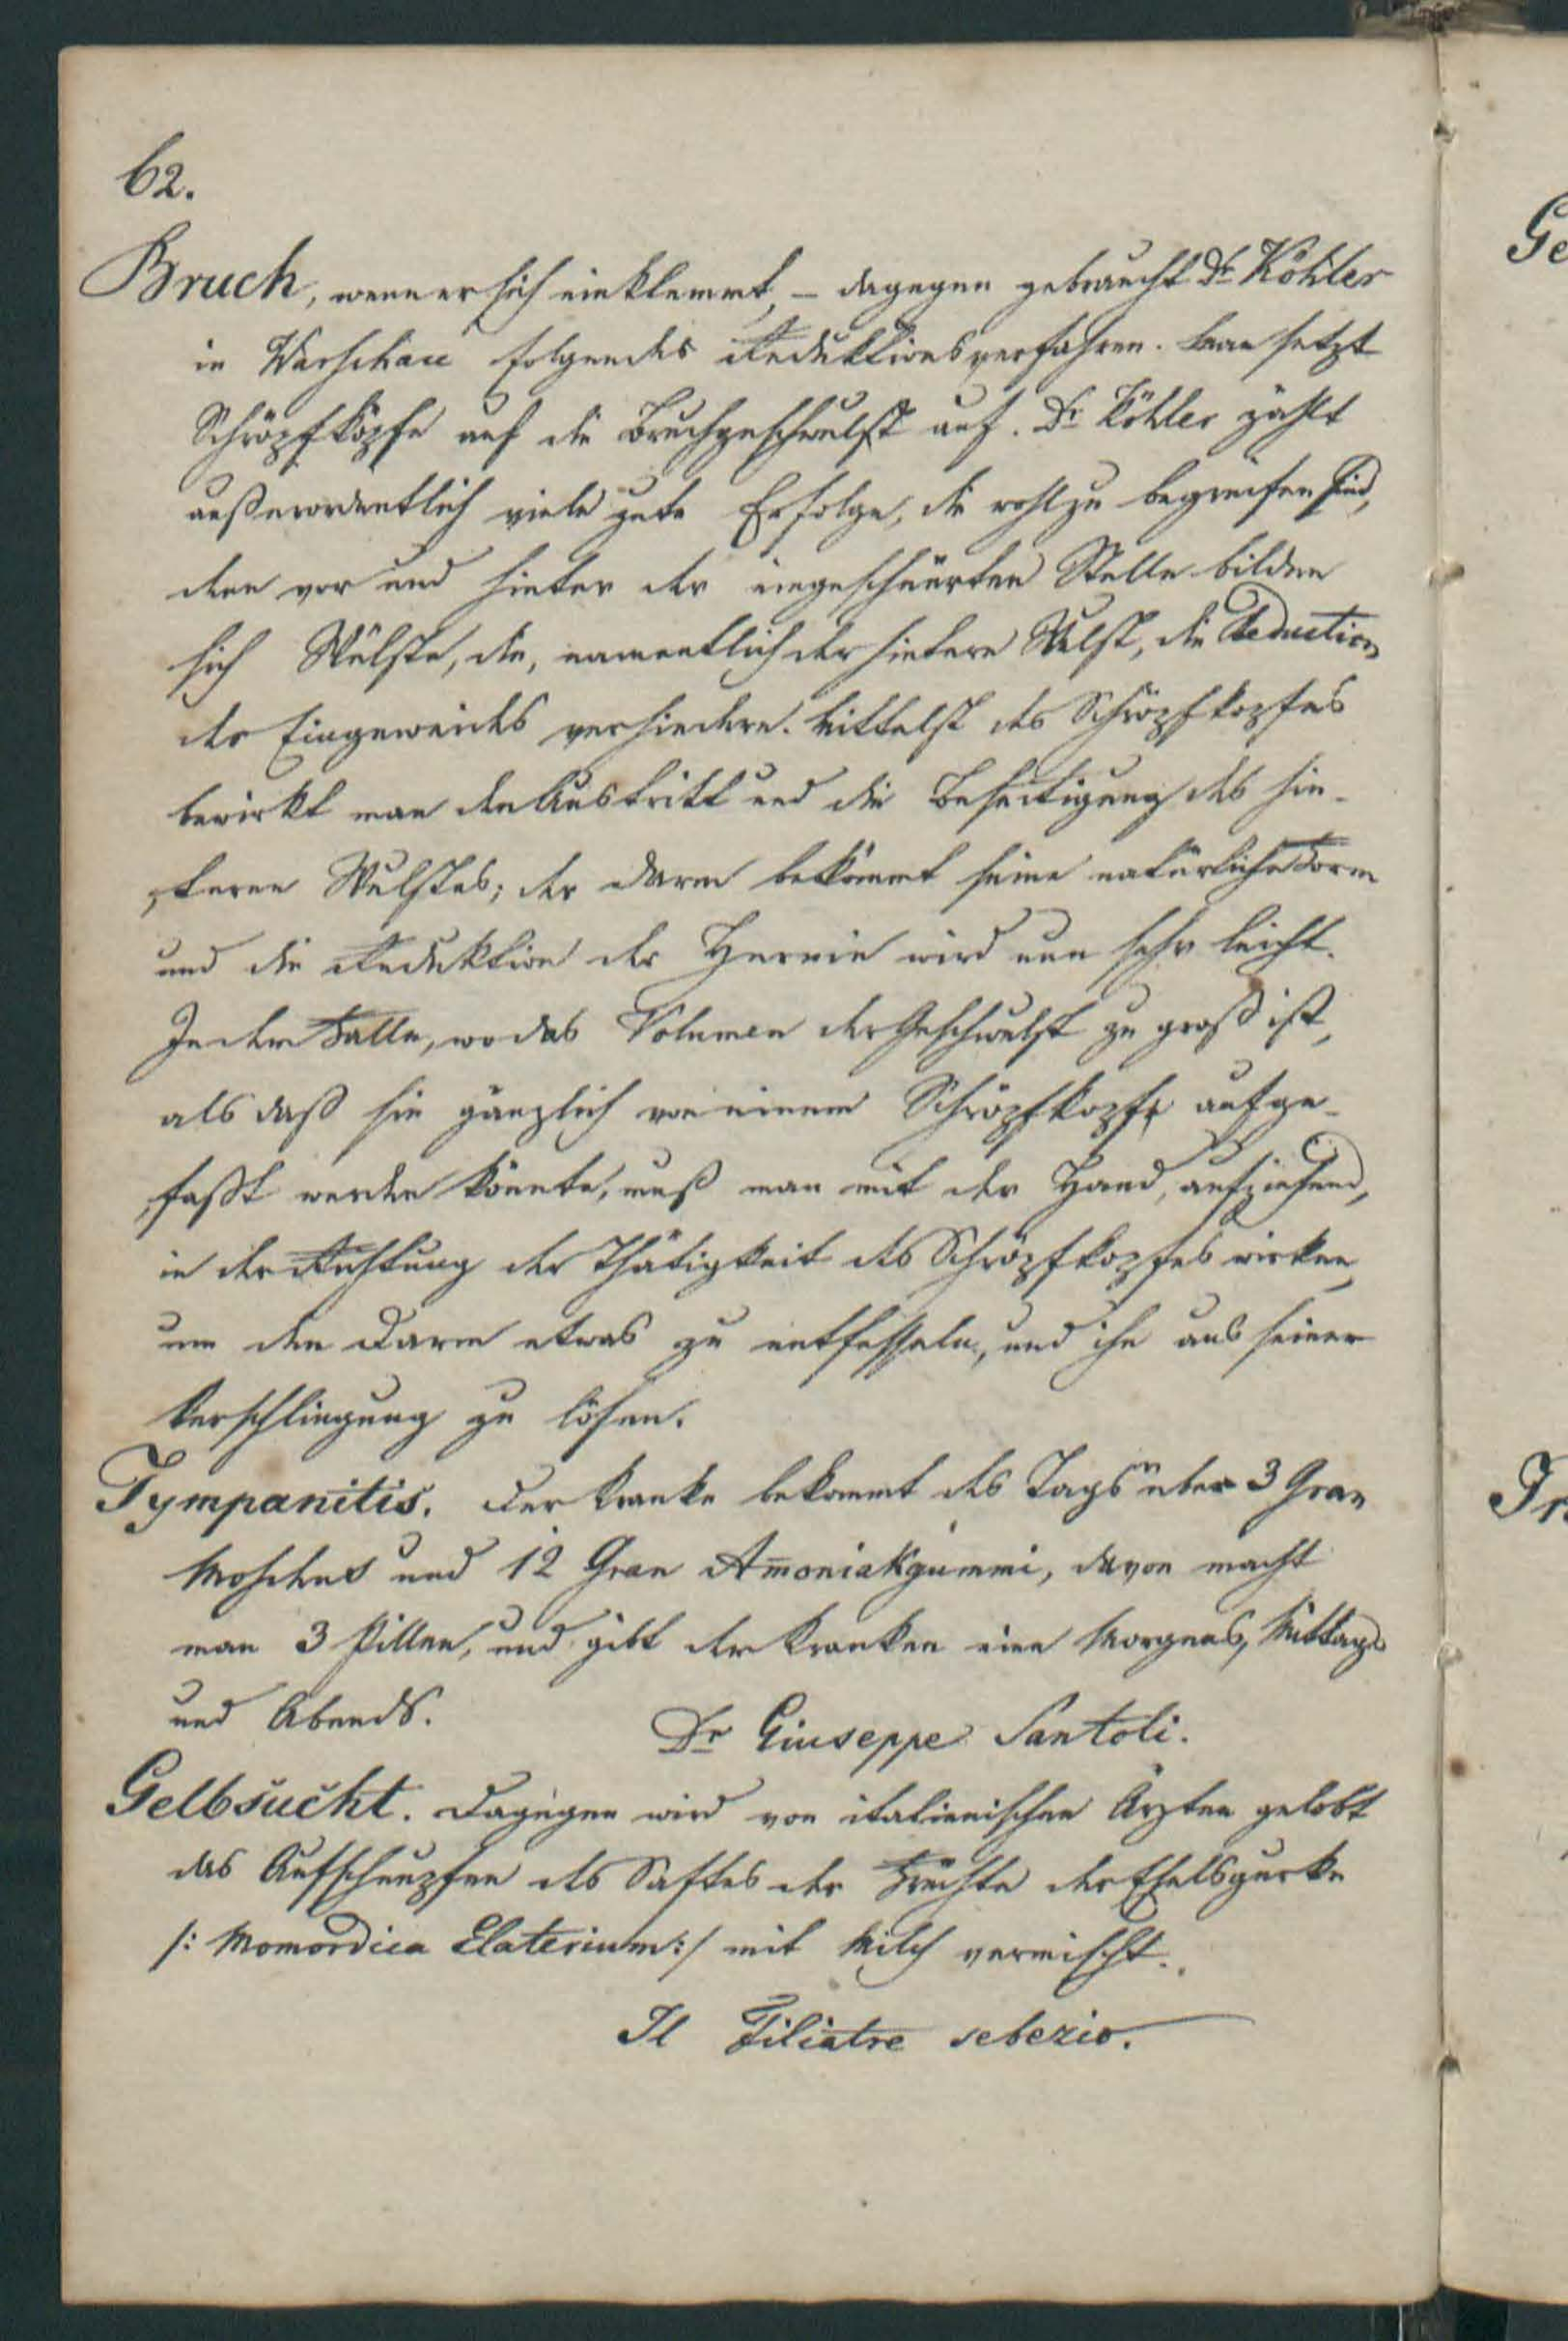 62.
Bruch, wenn er sich einklemmt, – dagegen gebraucht Dr Köhler
in Warschau folgendes Reduktionsverfahren. Man setzt
Schröpfköpfe auf die Bruchgeschwulst auf. Dr Köhler zählt
außerordentlich viele gute Erfolge, die wohl zu begreifen sind,
denn vor und hinter der eingeschnürten Stelle bilden
sich Wülste, die, namentlich der hintere Wulst, die Reduction
des Eingeweides verhindern. Mittelst des Schröpfkopfes
bewirkt man den Austritt und die Beseitigung des hin-
teren Wulstes; der Darm bekömmt seine natürliche Form
und die Reduktion der Hernie wird nun sehr leicht.
In dem Falle, wo das Volumen der Geschwulst zu groß ist,
als daß sie gänzlich von einem Schröpfkopfe aufge-
faßt werden könnte, muß man mit der Hand, aufziehend,
in der Richtung der Thätigkeit des Schröpfkopfes wirken,
um den Darm etwas zu entfesseln, und ihn aus seiner
Verschlingung zu lösen.
Tympanitis. Der Kranke bekommt des Tags über 3 Gran
Moschus und 12 Gran Am̅oniakgummi, davon macht
man 3 Pillen, und gibt dem Kranken eine Morgens, Mittags
und Abends.
Dr Giuseppe Santoli.
Gelbsucht. Dagegen wird von italienischen Ärzten gelobt
das Aufschnupfen des Saftes der Früchte der Eselsgurke
/: Momordica Elaterium :/ mit Milch vermischt.
Il Filiatre sebezio.
Ge